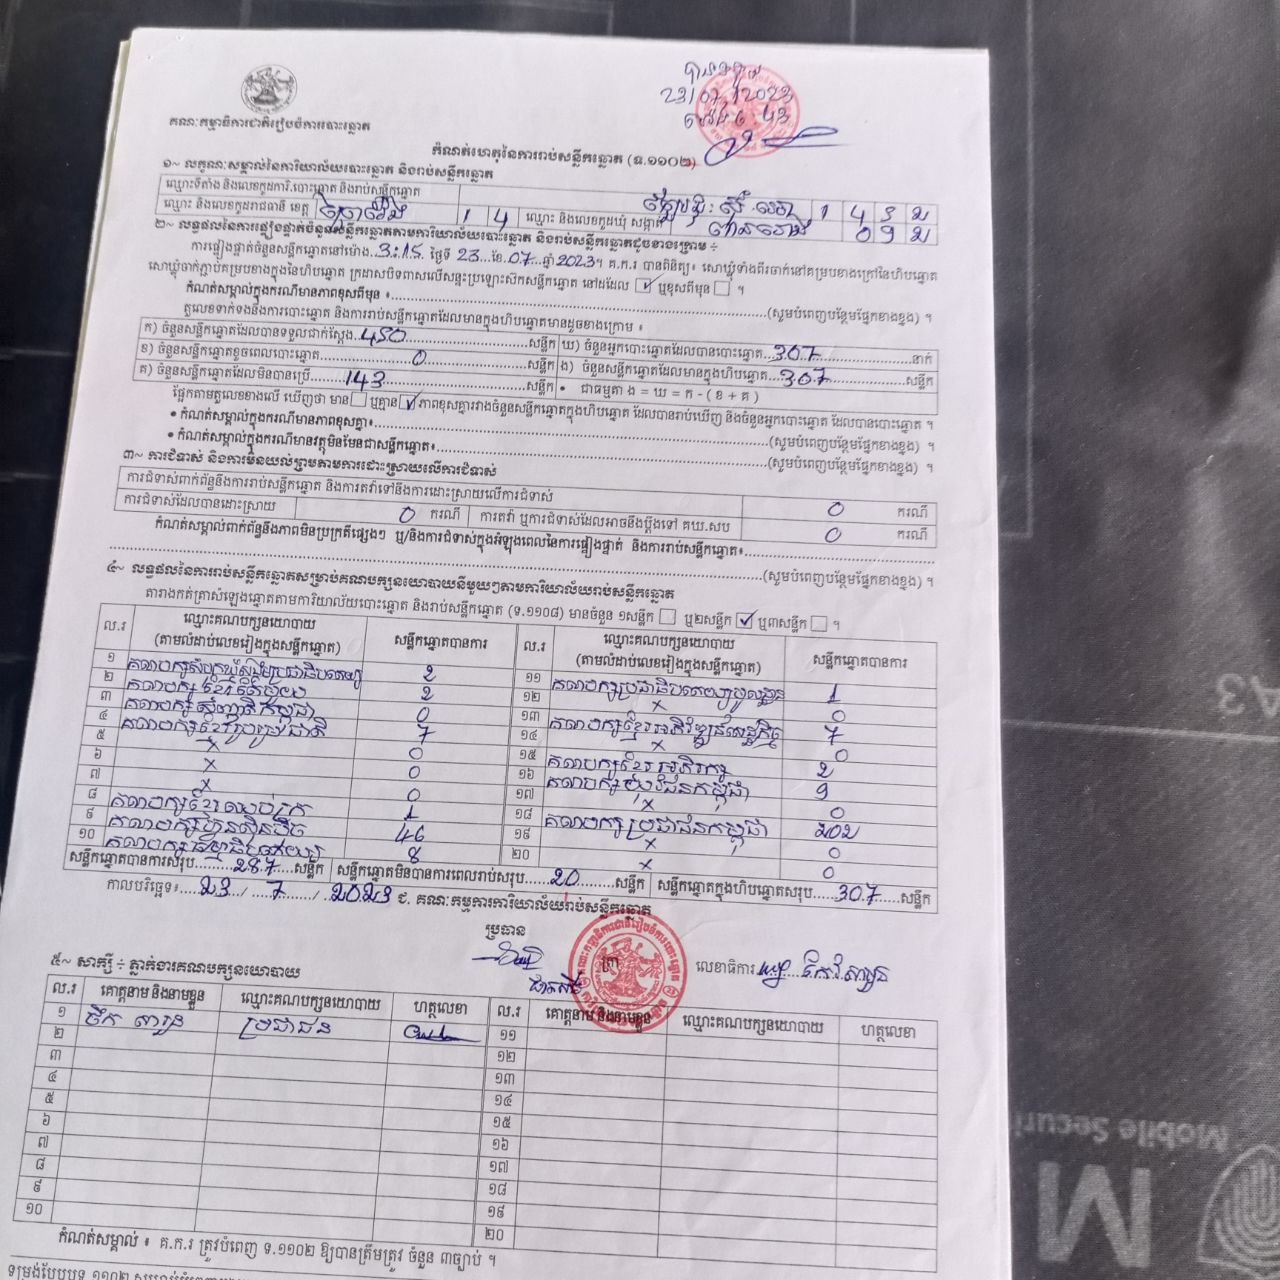 គណៈកម្មាធិការជាតិរៀបចំការបោះឆ្នោត
23/07/2023
កំណត់ហេតុនៃការរាប់សន្លឹកឆ្នោត (ទ.១១០២)
១~ លក្ខណៈសម្គាល់នៃការិយាល័យបោះឆ្នោត និងរាប់សន្លឹកឆ្នោត
ឈ្មោះទីតាំង និងលេខកូដការិ.បោះឆ្នោត និងរាប់សន្លឹកឆ្នោត
ឈ្មោះ និងលេខកូដរាជធានី ខេត្ត ព្រៃវែង 1 4 ឈ្មោះ និងលេខកូដឃុំ សង្កាត់
២~ លទ្ធផលនៃការផ្ទៀងផ្ទាត់ចំនួនសន្លឹកឆ្នោតតាមការិយាល័យបោះឆ្នោត និងរាប់សន្លឹកឆ្នោតដូចខាងក្រោម ÷
ការផ្ទៀងផ្ទាត់ចំនួនសន្លឹកឆ្នោតនៅម៉ោង 3:15 ថ្ងៃទី 23 ខែ 07 ឆ្នាំ 2023។ គ.ក.រ បានពិនិត្យ៖ សោឃ្លុំទាំងពីរចាក់នៅគម្របខាងក្រៅនៃហិបឆ្នោត
សោឃ្លុំចាក់ភ្ជាប់គម្របខាងក្នុងនៃហិបឆ្នោត ក្រដាសបិទពាសលើសន្ទះប្រឡោះស៊កសន្លឹកឆ្នោត នៅដដែល ✓ ឬខុសពីមុន ។
កំណត់សម្គាល់ក្នុងករណីមានភាពខុសពីមុន ៖ (សូមបំពេញបន្ថែមផ្នែកខាងខ្នង) ។
តួលេខទាក់ទងនឹងការបោះឆ្នោត និងការរាប់សន្លឹកឆ្នោតដែលមានក្នុងហិបឆ្នោតមានដូចខាងក្រោម ៖
ក) ចំនួនសន្លឹកឆ្នោតដែលបានទទួលជាក់ស្តែង 450 សន្លឹក ឃ) ចំនួនអ្នកបោះឆ្នោតដែលបានបោះឆ្នោត 307 នាក់
ខ) ចំនួនសន្លឹកឆ្នោតខូចពេលបោះឆ្នោត 0 សន្លឹក ង) ចំនួនសន្លឹកឆ្នោតដែលមានក្នុងហិបឆ្នោត 307 សន្លឹក
គ) ចំនួនសន្លឹកឆ្នោតដែលមិនបានប្រើ 143 សន្លឹក • ជាធម្មតា ង = ឃ = ក - ( ខ + គ )
ផ្អែកតាមតួលេខខាងលើ ឃើញថា មាន ឬគ្មាន ✓ ភាពខុសគ្នារវាងចំនួនសន្លឹកឆ្នោតក្នុងហិបឆ្នោត ដែលបានរាប់ឃើញ និងចំនួនអ្នកបោះឆ្នោត ដែលបានបោះឆ្នោត ។
• កំណត់សម្គាល់ក្នុងករណីមានភាពខុសគ្នា៖ (សូមបំពេញបន្ថែមផ្នែកខាងខ្នង) ។
• កំណត់សម្គាល់ក្នុងករណីមានវត្ថុមិនមែនជាសន្លឹកឆ្នោត៖ (សូមបំពេញបន្ថែមផ្នែកខាងខ្នង) ។
៣~ ការជំទាស់ និងការមិនយល់ព្រមតាមការដោះស្រាយលើការជំទាស់
ការជំទាស់ពាក់ព័ន្ធនឹងការរាប់សន្លឹកឆ្នោត និងការតវ៉ាទៅនឹងការដោះស្រាយលើការជំទាស់ 0 ករណី
ការជំទាស់ដែលបានដោះស្រាយ 0 ករណី ការតវ៉ា ឬការជំទាស់ដែលអាចនឹងប្តឹងទៅ គឃ.សប 0 ករណី
កំណត់សម្គាល់ពាក់ព័ន្ធនឹងភាពមិនប្រក្រតីផ្សេងៗ ឬ/និងការជំទាស់ក្នុងអំឡុងពេលនៃការផ្ទៀងផ្ទាត់ និងការរាប់សន្លឹកឆ្នោត៖
(សូមបំពេញបន្ថែមផ្នែកខាងខ្នង) ។
៤~ លទ្ធផលនៃការរាប់សន្លឹកឆ្នោតសម្រាប់គណបក្សនយោបាយនីមួយៗតាមការិយាល័យរាប់សន្លឹកឆ្នោត
តារាងកត់ត្រាសំឡេងឆ្នោតតាមការិយាល័យបោះឆ្នោត និងរាប់សន្លឹកឆ្នោត (ទ.១១០៨) មានចំនួន ១សន្លឹក ឬ២សន្លឹក ✓ ឬ៣សន្លឹក ។
ល.រ ឈ្មោះគណបក្សនយោបាយ (តាមលំដាប់លេខរៀងក្នុងសន្លឹកឆ្នោត) សន្លឹកឆ្នោតបានការ ល.រ ឈ្មោះគណបក្សនយោបាយ (តាមលំដាប់លេខរៀងក្នុងសន្លឹកឆ្នោត) សន្លឹកឆ្នោតបានការ
១ 2 ១១ គណបក្សប្រជាធិបតេយ្យមូលដ្ឋាន 1
២ 2 ១២ x 0
៣ 0 ១៣ គណបក្សខ្មែរអភិវឌ្ឍន៍សេដ្ឋកិច្ច 7
៤ គណបក្សខ្មែររួបរួមជាតិ 7 ១៤ x 0
៥ x 0 ១៥ គណបក្សខ្មែរអភិរក្ស 2
៦ x 0 ១៦ 9
៧ x 0 ១៧ x 0
៨ 1 ១៨ គណបក្សប្រជាជនកម្ពុជា 202
៩ គណបក្សហ៊្វុនស៊ិនប៉ិច 46 ១៩ x 0
១០ គណបក្សធម្មាធិបតេយ្យ 8 ២០ x 0
សន្លឹកឆ្នោតបានការសរុប 287 សន្លឹក សន្លឹកឆ្នោតមិនបានការពេលរាប់សរុប 20 សន្លឹក សន្លឹកឆ្នោតក្នុងហិបឆ្នោតសរុប 307 សន្លឹក
កាលបរិច្ឆេទ៖ 23 / 7 / 2023 ជ. គណៈកម្មការការិយាល័យរាប់សន្លឹកឆ្នោត
ប្រធាន
លេខាធិការ
៥~ សាក្សី ÷ ភ្នាក់ងារគណបក្សនយោបាយ
ល.រ គោត្តនាម និងនាមខ្លួន ឈ្មោះគណបក្សនយោបាយ ហត្ថលេខា ល.រ គោត្តនាម និងនាមខ្លួន ឈ្មោះគណបក្សនយោបាយ ហត្ថលេខា
១ ប្រជាជន ១១
២ ១២
៣ ១៣
៤ ១៤
៥ ១៥
៦ ១៦
៧ ១៧
៨ ១៨
៩ ១៩
១០ ២០
កំណត់សម្គាល់ ៖ គ.ក.រ ត្រូវបំពេញ ទ.១១០២ ឱ្យបានត្រឹមត្រូវ ចំនួន ៣ច្បាប់ ។
A3
Mobile Securi
M